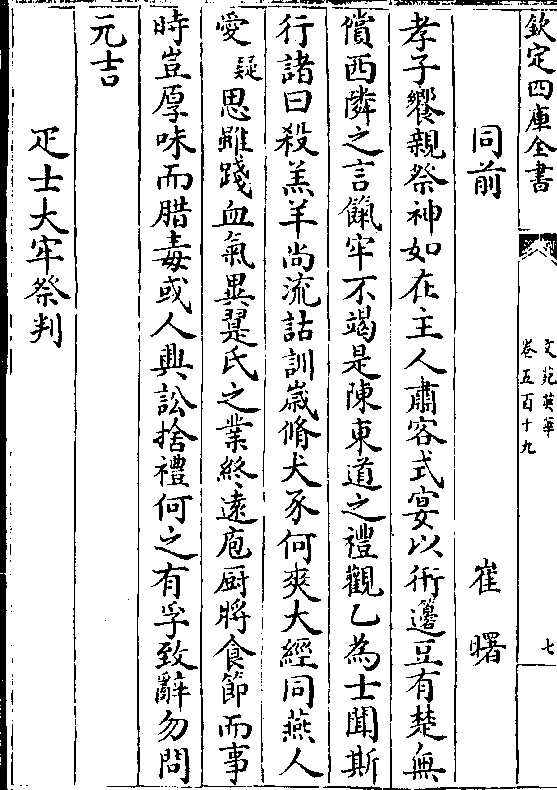 欽定四庫全書
文苑英華
卷五百十九
七
同前
崔曙
孝子饗親祭神如在主人肅客式宴以衎籩豆有楚無
償西隣之言餼牢不竭是陳東道之禮觀乙為士聞斯
行諸曰殺羔羊尚流詁訓歲脩犬豕何爽大經同燕人
愛疑思雖踐血氣異翟氏之業終遠庖厨將食節而事
時豈厚味而腊毒或人興訟捨禮何之有孚致辭勿問
元吉
疋士大牢祭判